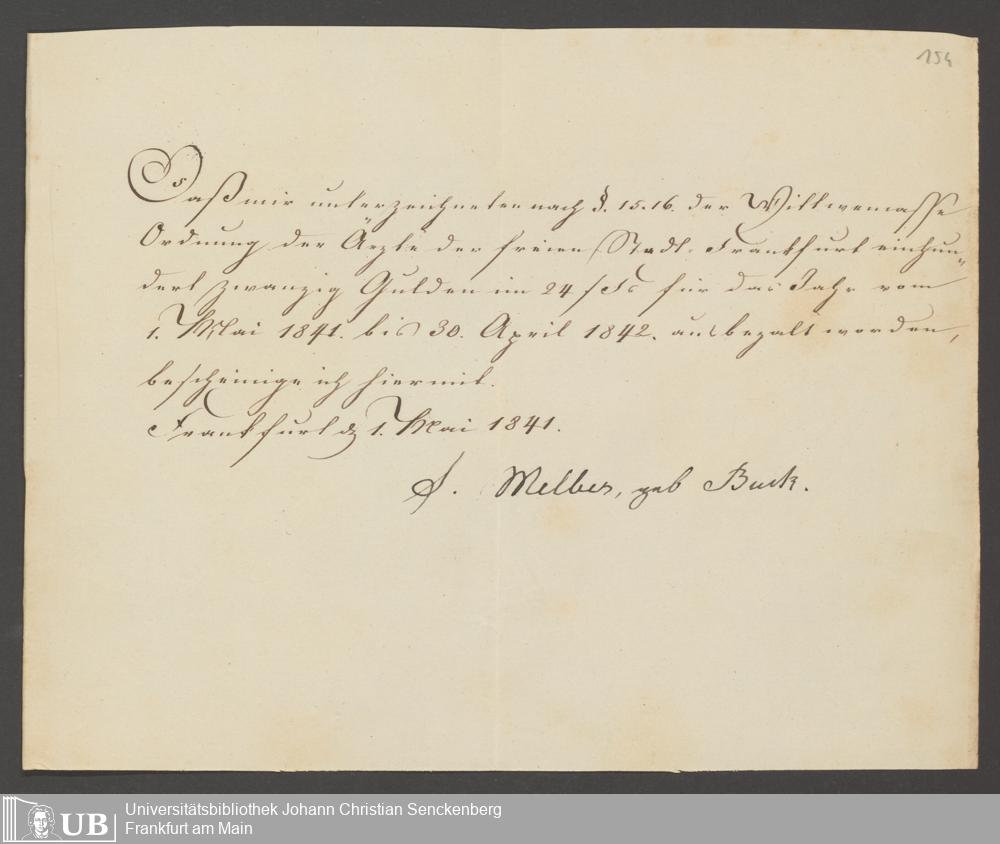 154
Daß mir unterzeichneten nach §. 15. 16. der Wittwemasse
Ordnung der Ärzte der freien Stadt Frankfurt einhun„
dert zwanzig Gulden im 24 f Fs für das Jahr vom
1. Mai 1841. bis 30. April 1842. ausbezalt worden,
bescheinige ich hiermit.
Frankfurt d 1. Mai 1841.
Melber, geb Buck.
UB
Universitätsbibliothek Johann Christian Senckenberg
Frankfurt am Main